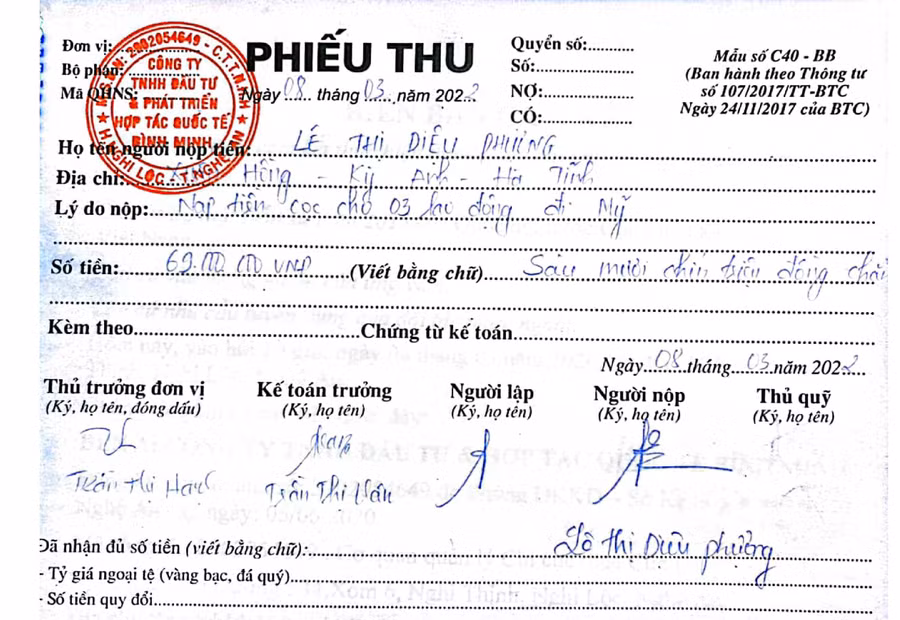 Đơn vị:
PHIẾU THU
Quyển số:............
Mẫu số C40 - BB
Bộ phận:
Số:....................
(Ban hành theo Thông tư
Mã QHNS:
Ngày 08 tháng 03 năm 2022
NỢ:...................
số 107/2017/TT-BTC
CÓ:...................
Ngày 24/11/2017 của BTC)
M.S.D.N: 2902054649 - C.T.T.N.H.H
CÔNG TY
TNHH ĐẦU TƯ
& PHÁT TRIỂN
HỢP TÁC QUỐC TẾ
BÌNH MINH
H. NGHI LỘC - T. NGHỆ AN
Họ tên người nộp tiền: LÊ THỊ DIỆU PHƯƠNG
Địa chỉ: Hồng - Kỳ Anh - Hà Tĩnh
Lý do nộp: Nộp tiền cọc cho 03 lao động đi Mỹ
Số tiền: 69.000 000 VNĐ (Viết bằng chữ) Sáu mươi chín triệu đồng chẵn
Kèm theo........................................Chứng từ kế toán
Ngày 08 tháng 03 năm 2022
Thủ trưởng đơn vị Kế toán trưởng Người lập Người nộp Thủ quỹ
(Ký, họ tên, đóng dấu) (Ký, họ tên) (Ký, họ tên) (Ký, họ tên) (Ký, họ tên)
Trần Thị Trần Thị Vân
Đã nhận đủ số tiền (viết bằng chữ):
Thị Diệu Phương
- Tỷ giá ngoại tệ (vàng bạc, đá quý)
- Số tiền quy đổi